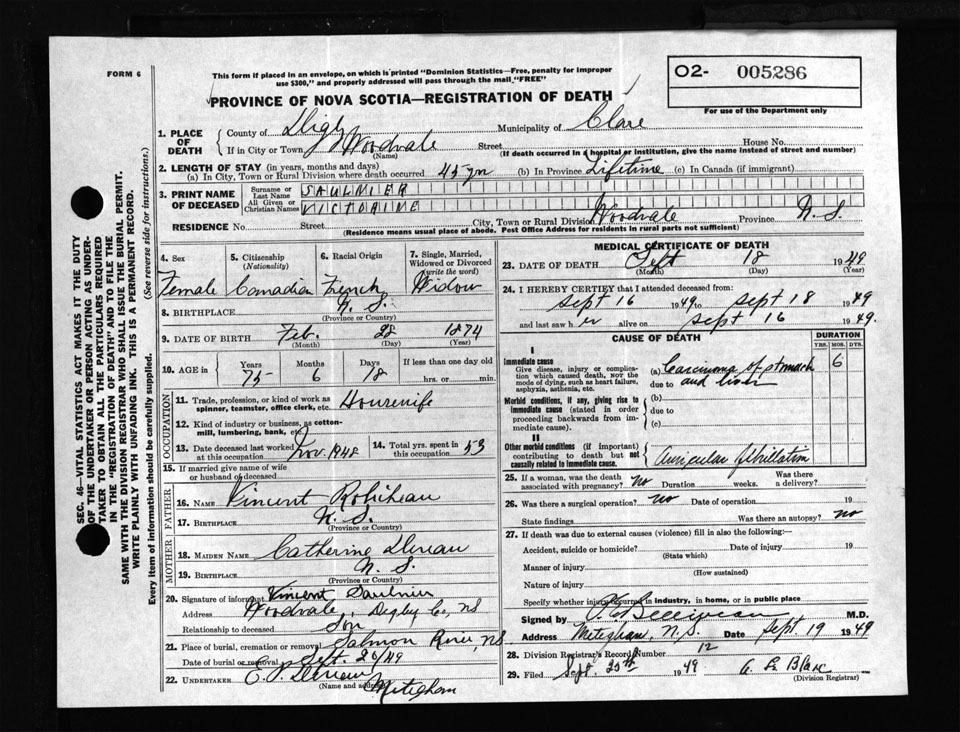 FORM 6
This form if placed in an envelope, on which is printed "Dominion Statistics—Free, penalty for improper
use $300," and properly addressed will pass through the mail "FREE"
O2- 005286
For use of the Department only
PROVINCE OF NOVA SCOTIA—REGISTRATION OF DEATH
1. PLACE OF DEATH
County of Digby Municipality of Clare
If in City or Town Woodvale Street House No.
(Name) (If death occurred in a hospital or institution, give the name instead of street and number)
2. LENGTH OF STAY (in years, months and days)
(a) In City, Town or Rural Division where death occurred 45 yrs (b) In Province Lifetime (c) In Canada (if immigrant)
3. PRINT NAME OF DECEASED
Surname or Last Name SAULNIER
All Given or Christian Names VICTORINE
RESIDENCE No. Street City, Town or Rural Division Woodvale Province N.S.
(Residence means usual place of abode. Post Office Address for residents in rural parts not sufficient)
SEC. 46—VITAL STATISTICS ACT MAKES IT THE DUTY
OF THE UNDERTAKER OR PERSON ACTING AS UNDER-
TAKER TO OBTAIN ALL THE PARTICULARS REQUIRED
IN THE "REGISTRATION OF DEATH" AND TO FILE THE
SAME WITH THE DIVISION REGISTRAR WHO SHALL ISSUE THE BURIAL PERMIT.
WRITE PLAINLY WITH UNFADING INK. THIS IS A PERMANENT RECORD.
Every item of information should be carefully supplied. (See reverse side for instructions.)
4. Sex 5. Citizenship (Nationality) 6. Racial Origin 7. Single, Married, Widowed or Divorced (write the word)
Female Canadian French Widow
8. BIRTHPLACE N.S.
(Province or Country)
9. DATE OF BIRTH Feb. 28 1874
(Month) (Day) (Year)
10. AGE in Years Months Days If less than one day old
75 6 18 hrs. or min.
OCCUPATION
11. Trade, profession, or kind of work as
spinner, teamster, office clerk, etc. Housewife
12. Kind of industry or business, as cotton-
mill, lumbering, bank, etc.
13. Date deceased last worked at this occupation Nov. 1948 14. Total yrs. spent in this occupation 53
15. If married give name of wife
or husband of deceased
FATHER
16. NAME Vincent Robicheau
17. BIRTHPLACE N.S.
(Province or Country)
MOTHER
18. MAIDEN NAME Catherine
19. BIRTHPLACE N.S.
(Province or Country)
20. Signature of informant Vincent Saulnier
Address Woodvale, Digby Co, NS
Relationship to deceased Son
21. Place of burial, cremation or removal Salmon River, NS
Date of burial or removal Sept. 20/49
22. UNDERTAKER E.
(Name and address) Meteghan
MEDICAL CERTIFICATE OF DEATH
23. DATE OF DEATH Sept 18 1949
(Month) (Day) (Year)
24. I HEREBY CERTIFY that I attended deceased from:
Sept 16 1949 to Sept 18 1949
and last saw her alive on Sept 16 1949.
CAUSE OF DEATH DURATION
YRS. MOS. DYS.
I
Immediate cause
Give disease, injury or complica-
tion which caused death, NOT the
mode of dying, such as heart failure,
asphyxia, asthenia, etc.
(a) Carcinoma of stomach 6
due to and liver
Morbid conditions, if any, giving rise to
immediate cause (stated in order
proceeding backwards from im-
mediate cause).
(b)
due to
(c)
II
Other morbid conditions (if important)
contributing to death but not
causally related to immediate cause.
Auricular fibrillation
25. If a woman, was the death associated with pregnancy? no Duration weeks. Was there a delivery?
26. Was there a surgical operation? no Date of operation 19
State findings Was there an autopsy? no
27. If death was due to external causes (violence) fill in also the following:—
Accident, suicide or homicide? Date of injury 19
(State which)
Manner of injury
(How sustained)
Nature of injury
Specify whether injury occurred in industry, in home, or in public place
Signed by M.D.
Address Meteghan, N.S. Date Sept 19 1949
28. Division Registrar's Record Number 12
29. Filed Sept. 20th 1949 A. Blanc
(Division Registrar)